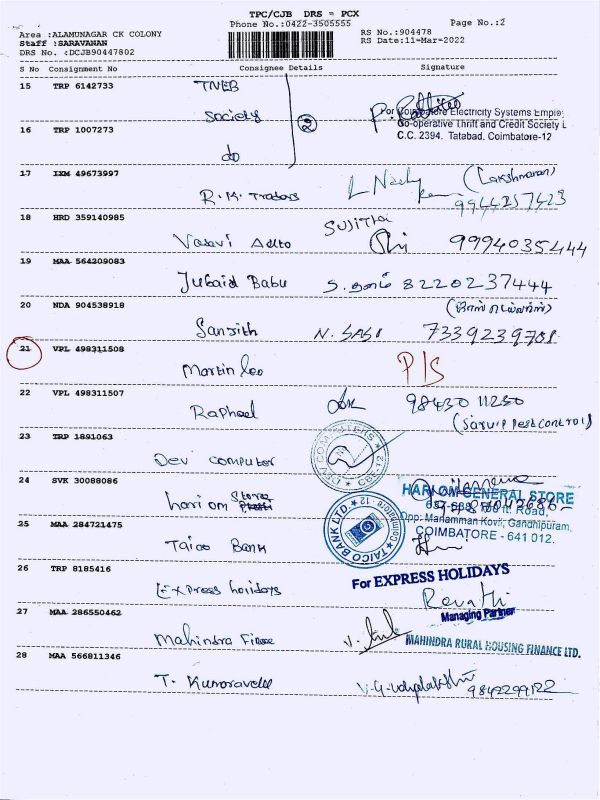 TPC/CJB DRS = PCX
Phone No.:0422-3505555
Page No.:2
Area :ALAMUNAGAR CK COLONY
Staff :SARAVANAN
DRS No. :DCJB90447802
RS No.:904478
RS Date:11-Mar-2022
S No Consignment No Consignee Details Signature
15 TRP 6142733 TNEB
Society
2
For Coimbatore Electricity Systems Emple
Co-operative Thrift and Credit Society L
C.C. 2394, Tatabad, Coimbatore-12
16 TRP 1007273 do
17 IXM 49673997 R.K. Traders
(Lakshmanan)
9944257423
18 HRD 359140985 Vasavi
SUJITHa
9994035444
19 MAA 564209083 Jubaid Babu
8220237444
20 NDA 904538918 Sanjith N. SASI 7339239701
21 VPL 498311508 Martin leo P/S
22 VPL 498311507 Raphael 98430 11230
(Sarvip Pest control)
23 TRP 1891063 Dev computer
DEV COMPUTERS
CBE-12
24 SVK 30088086 hari om Store
HARI OM GENERAL STORE
Opp: Mariamman Kovil, Gandhipuram,
COIMBATORE - 641 012.
25 MAA 284721475 Taico Bank
TAICO BANK LTD.
Coimbatore - 12
26 TRP 8185416 Express holidays
For EXPRESS HOLIDAYS
Revathi
Managing Partner
27 MAA 286550462 Mahindra
MAHINDRA RURAL HOUSING FINANCE LTD.
28 MAA 566811346 T. Kumaravel
9842299122